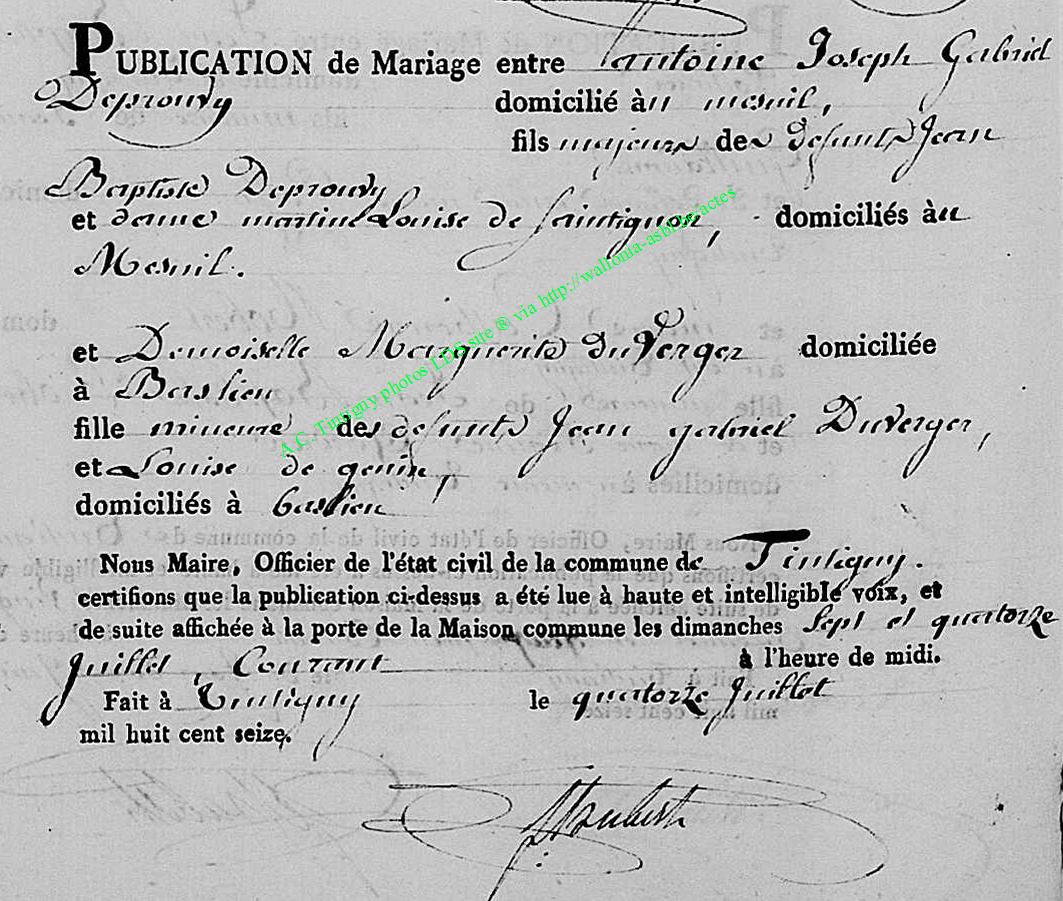 PUBLICATION de Mariage entre antoine Joseph Gabriel
Deprouvy domicilié àu mesnil,
fils majeur des defunts Jean
Baptiste Deprouvy
et dame martine Louise de saintignon, domiciliés àu
Mesnil.
et Demoiselle Marguerite du Verger domiciliée
à Baslieu
fille mineure des defunts Jean gabriel Duverger,
et Louise de genin,
domiciliés à baslieu
Nous Maire, Officier de l'état civil de la commune de Tintigny.
certifions que la publication ci-dessus a été lue à haute et intelligible voix, et
de suite affichée à la porte de la Maison commune les dimanches Sept et quatorze
Juillet, Courant à l'heure de midi.
Fait à Tintigny le quatorze Juillet
mil huit cent seize.
A.C. Tintigny photos LDS site ® via http://wallonia-asbl.be/actes